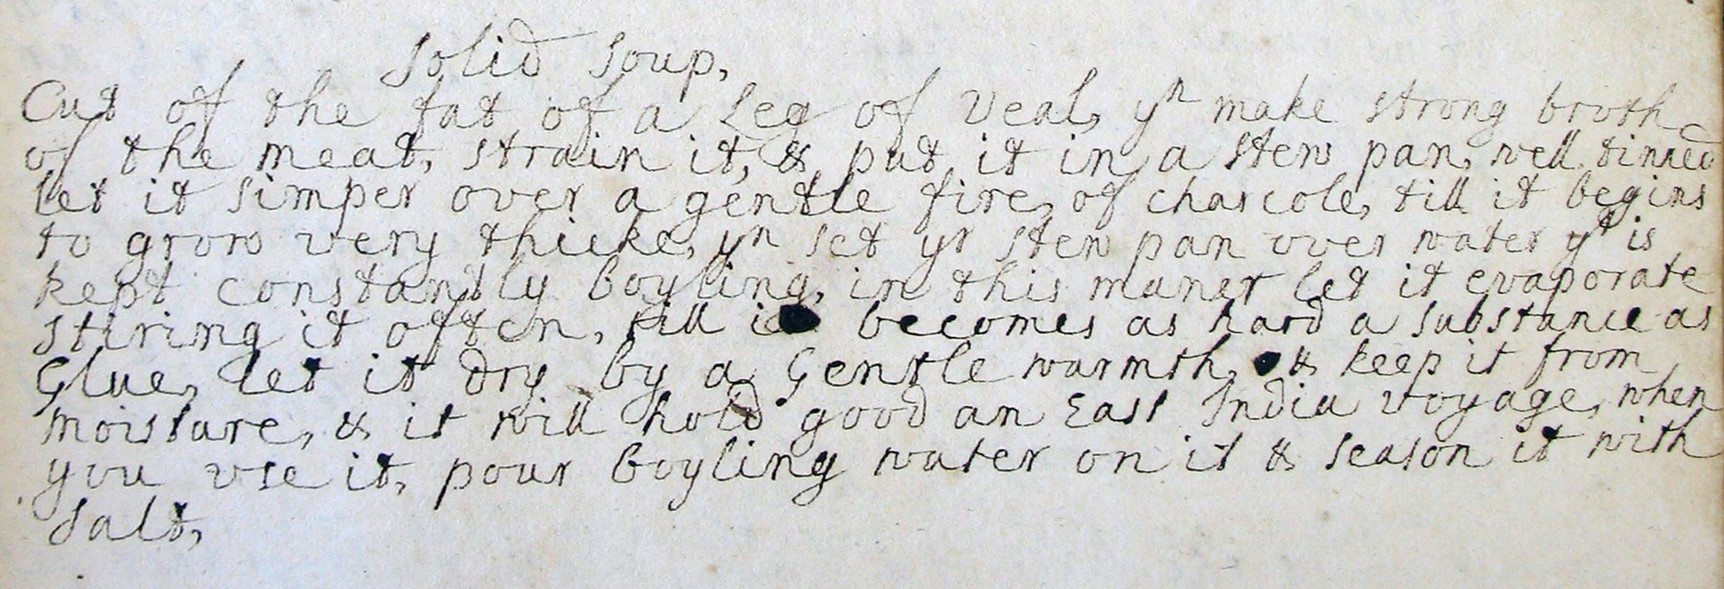 Solid Soup,
Cut of the fat of a Leg of Veal, yn make strong broth
of the meat, strain it, & put it in a stew pan, well tinned
let it simper over a gentle fire, of charcole, till it begins
to grow very thicke, yn set yr stew pan over water yt is
kept constantly boyling, in this maner let it evaporate
stiring it often, till it becomes as hard a substance as
Glue, let it dry by a Gentle warmth, & keep it from
moisture, & it will hold good an East India voyage, when
you use it, pour boyling water on it & season it with
salt,